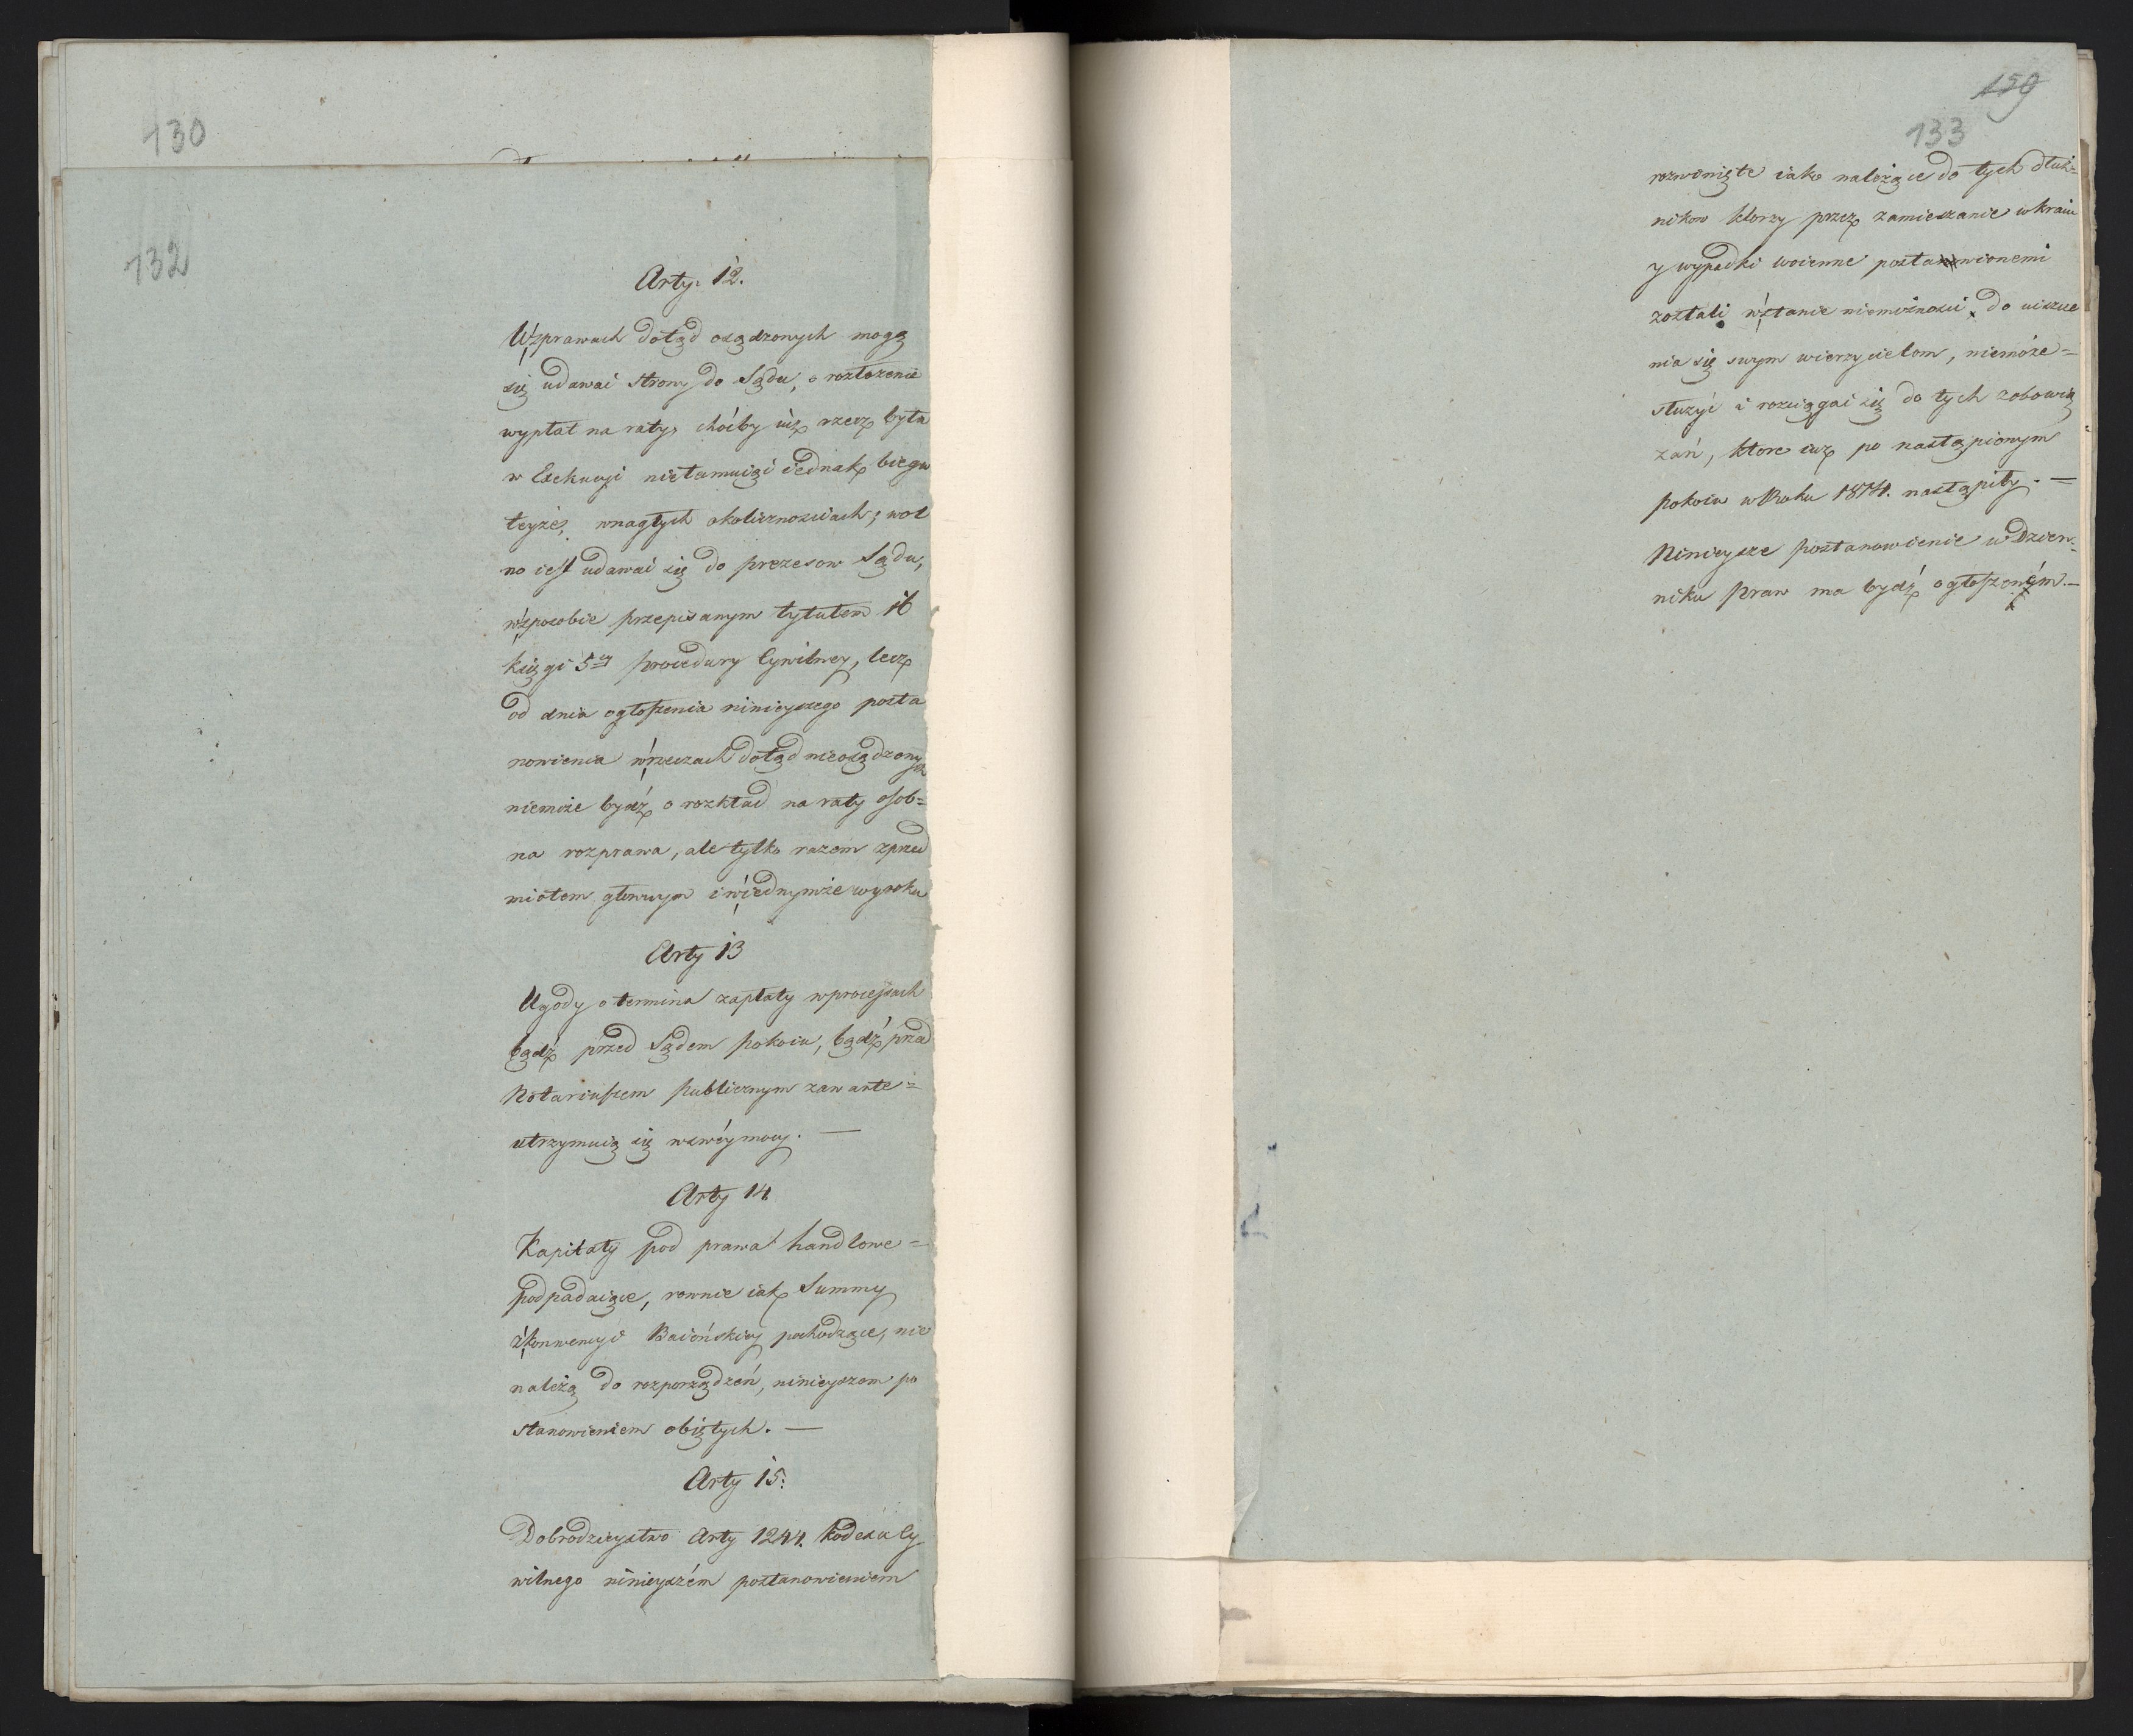 130
132
Arty. 12.
W sprawach dotąd osądzonych mogą
się udawać strony do Sądu, o rozłożenie
wypłat na raty, choćby iuż rzecz była
w Exekucyi nietamuiąć iednak biegu
teyże, wnagłych okolicznosciach; wol
no iest udawać się do prezesow Sądu,
w sposobie przepisanym tytułem 16
księgi 5ey procedury Cywilney, lecz
od dnia ogłoszenia ninieyszego posta
nowienia w rzeczach dotąd nieosądzonych
niemoże bydź o rozkład na raty osob=
na rozprawa, ale tylko razem zprzed
miotem głownym i w iednymże wyroku
Arty 13
Ugody o termina zapłaty wprocessach
bądź przed Sądem pokoiu, bądź przed
Notariuszem publicznym zawarte=
utrzymuią się wswéy mocy. —
Arty 14
Kapitały pod prawa handlowe=
podpadaiące, rownie iak Summy
z konwencyi Baiońskiey pochodzące, nie
należą do rozporządzeń, ninieyszem po
stanowieniem obiętych. —
Arty 15.
Dobrodzieystwo Arty 1244. kodexu Cy
wilnego ninieyszém postanowieniem
159
133
rozwinięte iako należące do tych dłuż=
nikow ktorzy przez zamieszanie w kraiu
y wypadki woienne postawionemi
zostali w stanie niemożnosci do uiszcze
nia się swym wierzycielom, niemoże=
służyć i rozciągać się do tych zobowią
zań, ktore iuż po nastąpionym
pokoiu w Roku 1814. nastąpiły. —
Ninieysze postanowienie w Dzien=
niku Praw ma bydź ogłoszoném. —